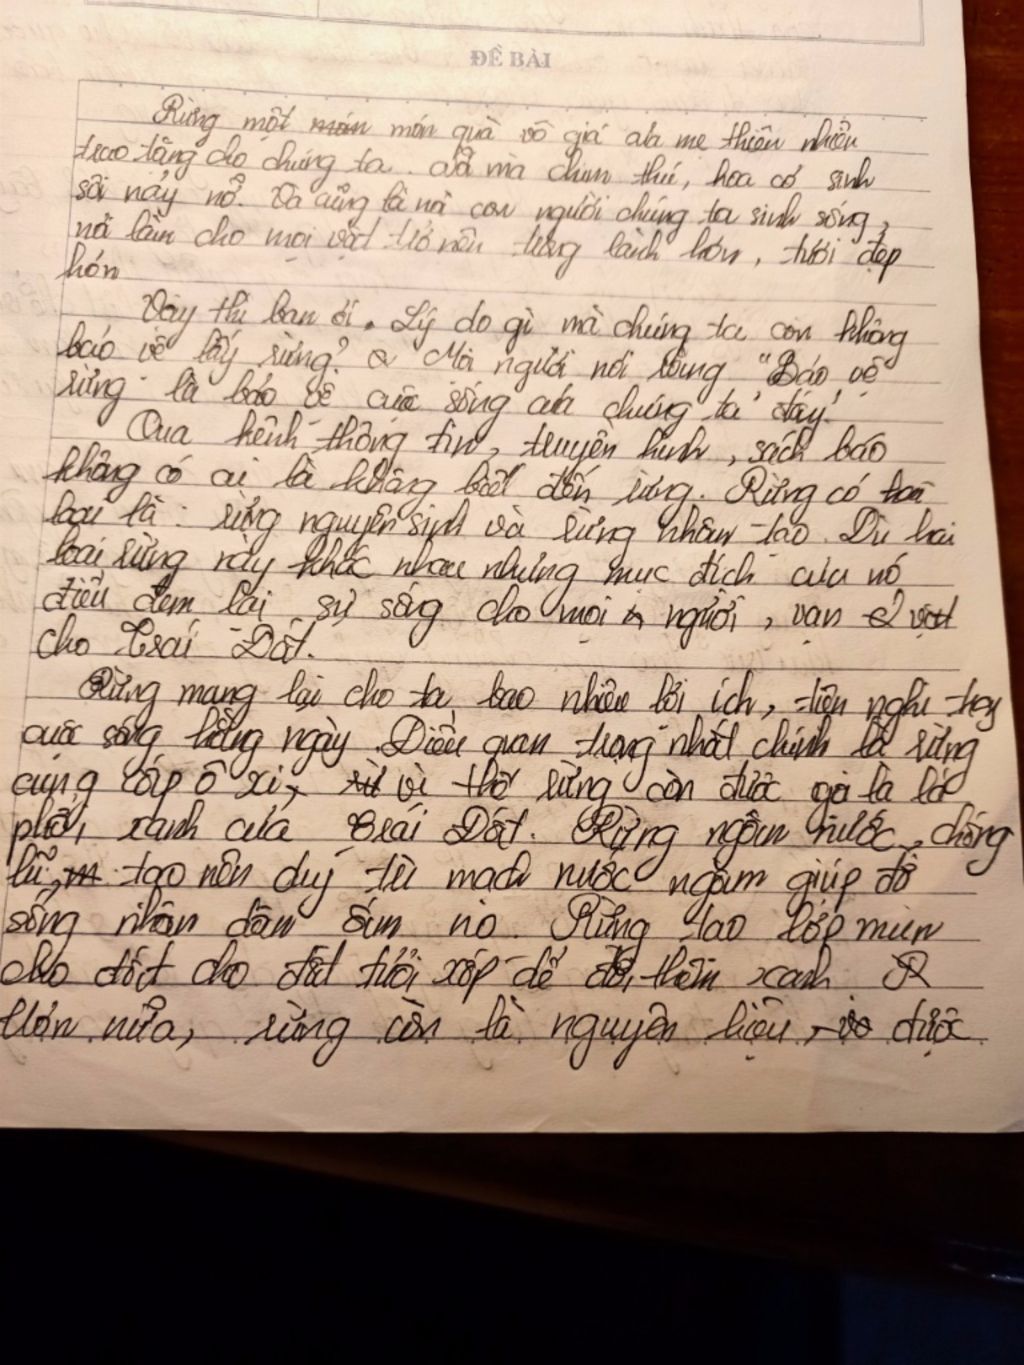 ĐỀ BÀI
Rừng một món quà vô giá của mẹ thiên nhiên
trao tặng cho chúng ta. mà chim thú, hoa cỏ sinh
sôi nảy nở. Và cũng là nơi con người chúng ta sinh sống,
nó làm cho mọi vật trở nên trong lành hơn, tươi đẹp
hơn
Vậy thì bạn ơi. Lý do gì mà chúng ta còn không
bảo vệ lấy rừng? Mọi người nói rằng "Bảo vệ
rừng là bảo vệ cuộc sống của chúng ta" đấy!
Qua kênh thông tin, truyền hình, sách báo
không có ai là không biết đến rừng. Rừng có hai
loại là: rừng nguyên sinh và rừng nhân tạo. Dù hai
loại rừng này khác nhau nhưng mục đích của nó
điều đem lại sự sống cho mọi người, vạn vật
cho Trái Đất.
Rừng mang lại cho ta bao nhiêu lợi ích, tiện nghi
cuộc sống hằng ngày. Điều quan trọng nhất chính là rừng
cung cấp ô xi, vì thế rừng còn được gọi là lá
phổi xanh của Trái Đất. Rừng ngăn nước, chống
lũ, tạo nên duy trì mạch nước ngầm giúp đời
sống nhân dân ấm no. Rừng tạo lớp mùn
cho đất cho đất tươi xốp để đồi thêm xanh
Hơn nữa, rừng còn là nguyên liệu, được